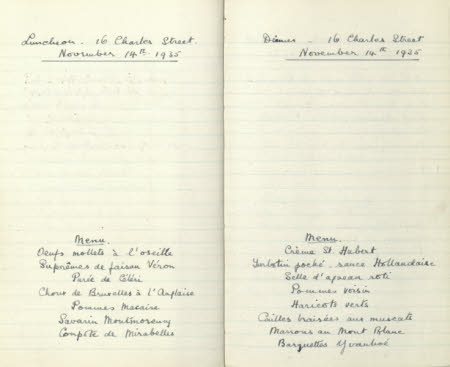 Luncheon. 16 Charles Street.
November 14th 1935
Menu.
Oeufs mollets à l'oseille
Suprêmes de faisan Véron
Purée de Céléri
Choux de Bruxelles à l'Anglaise
Pommes Macaire
Savarin Montmorency
Compôte de Mirabelles
Dinner - 16 Charles Street
November 14th 1935
Menu.
Crème St. Hubert
Turbotin poché, sauce Hollandaise
Selle d'agneau roti
Pommes voisin
Haricots verts
Cailles braisées aux muscats
Marrons au Mont Blanc
Barquettes Ivanhoë